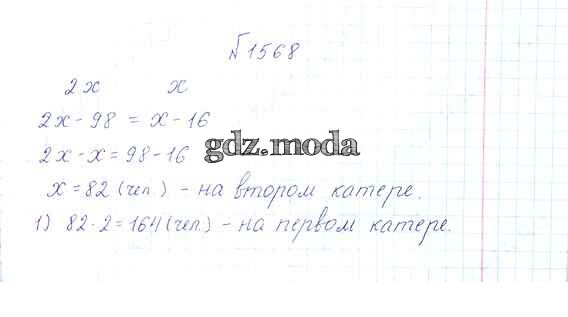 №1568
2x x
2x - 98 = x - 16
2x - x = 98 - 16
gdz.moda
x = 82 (чел.) - на втором катере.
1) 82 · 2 = 164 (чел.) - на первом катере.